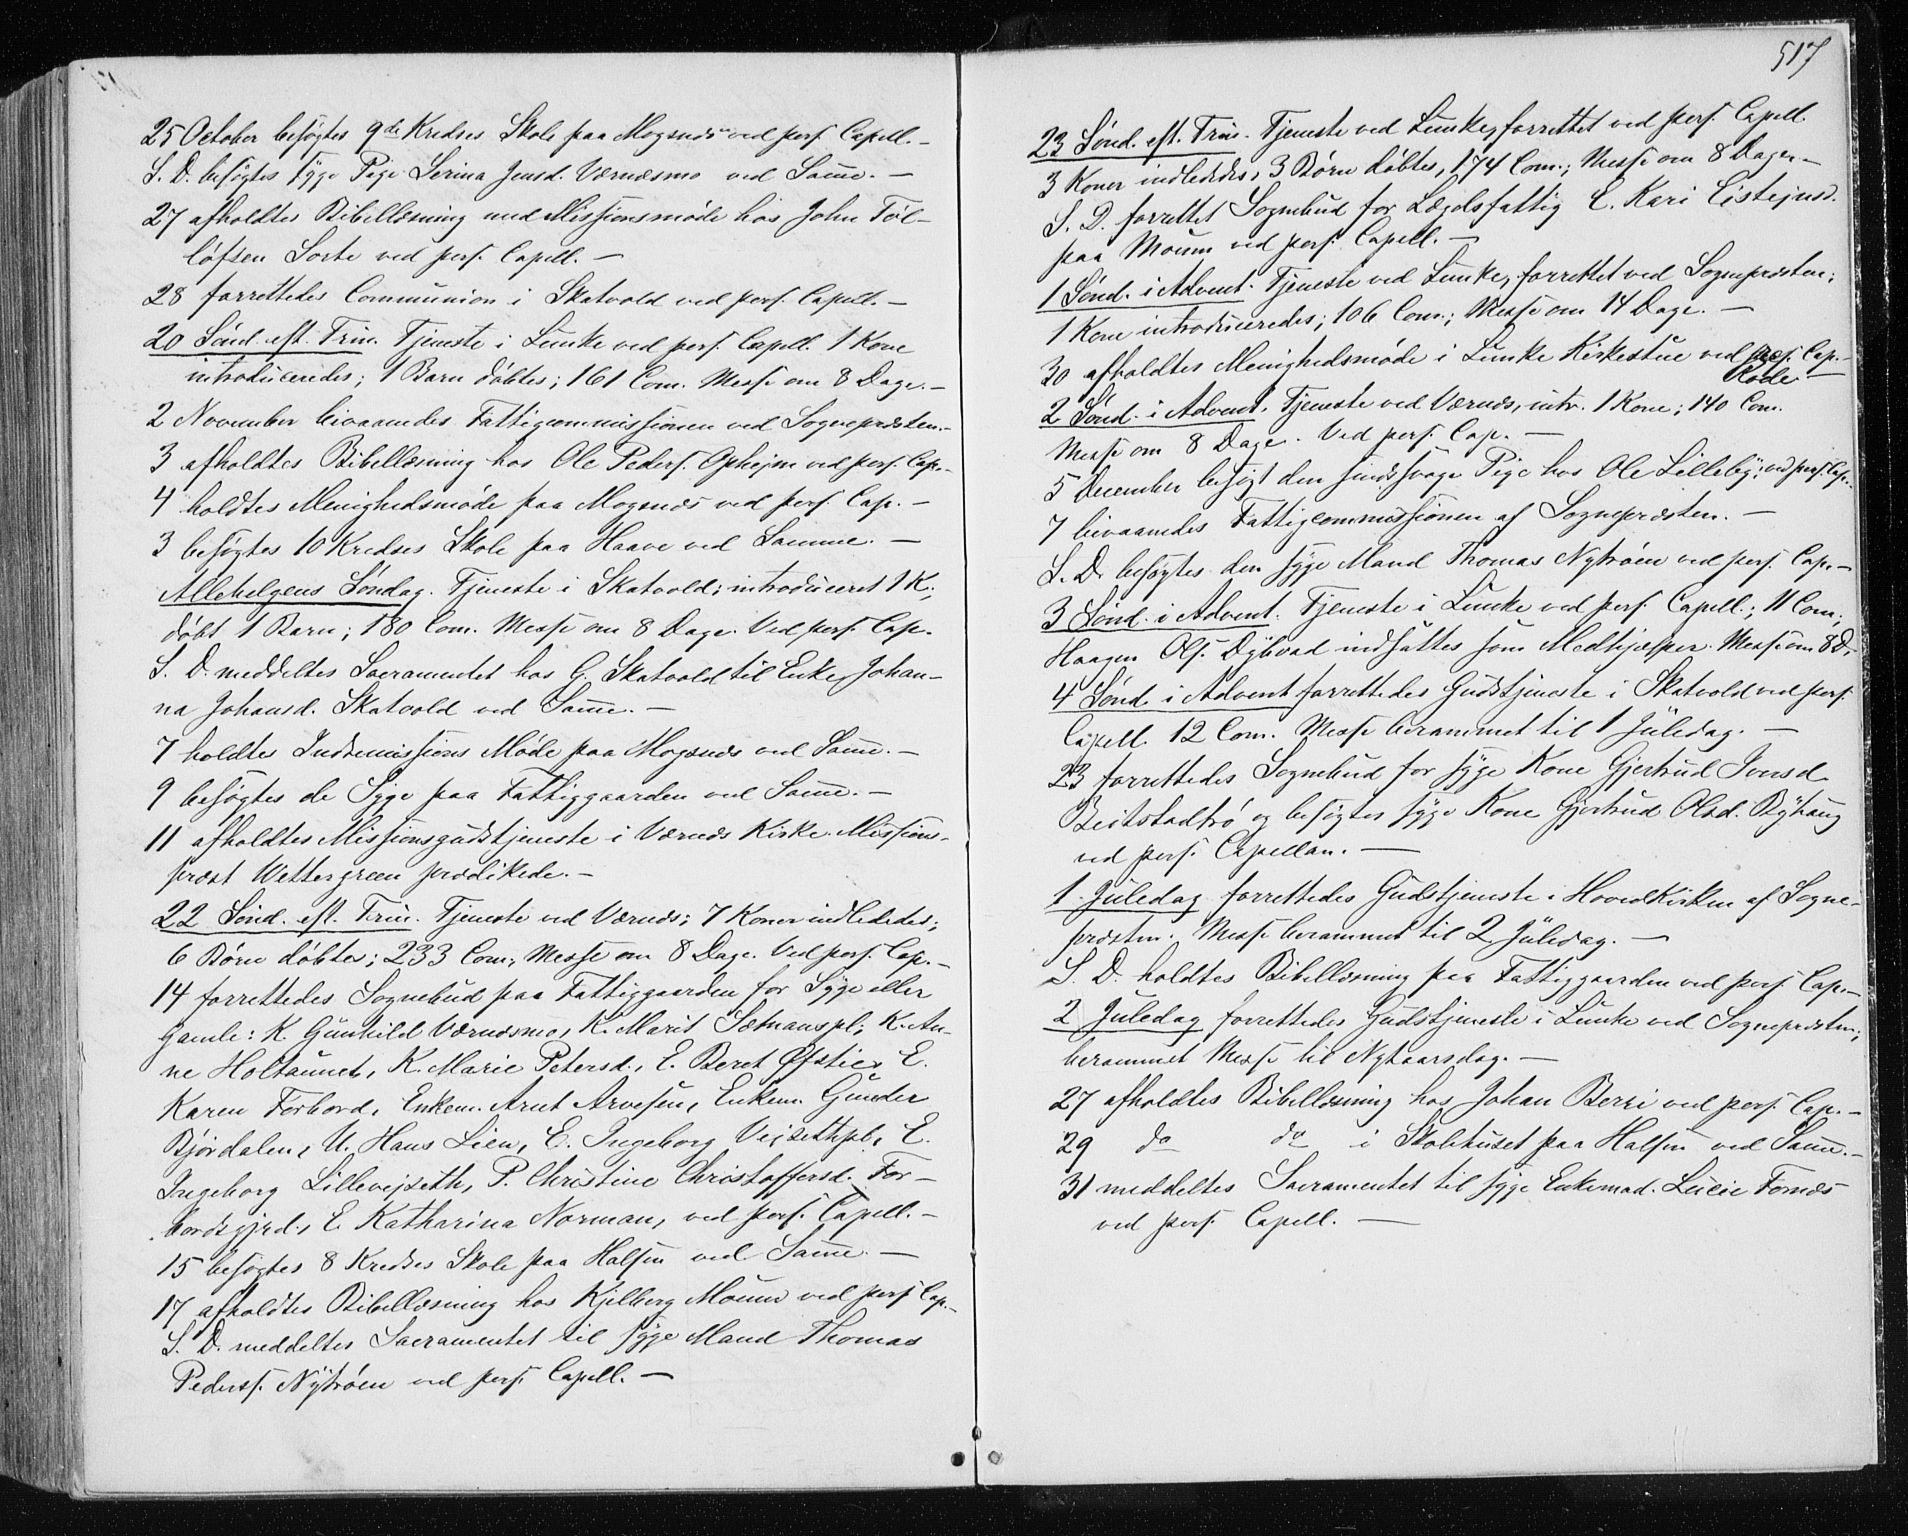 25 October besøgtes 9de Kredses Skole paa Mogsnæs ved pers. Capell. –
S. D. besøgtes syge Pige Serina Jensd. Værnæsmo ved Samme. –
27 afholdtes Bibellæsning med Missionsmøde hos John Tøl-
løfsen Sorte ved pers. Capell. –
28 forrettedes Communion i Skatvold ved pers. Capell. –
20 Sønd. eft. Trin. Tjeneste i Lunke ved pers. Capell. 1 Kone
introduceredes; 1 Barn døbtes; 161 Com. Messe om 8 Dage. –
2 November bivaanedes Fattigcommissionen ved Sognepræsten. –
3 afholdtes Bibellæsning hos Ole Peders. Ophejm ved pers. Cap. –
4 holdtes Menighedsmøde paa Mogsnæs ved pers. Cap. –
3 besøgtes 10 Kredses Skole paa Haave ved Samme. –
Allehelgens Søndag. Tjeneste i Skatvold; introduceret 1 K.;
døbt 1 Barn; 180 Com. Messe om 8 Dage. Ved pers. Cap.
S. D. meddeltes Sacramentet hos G. Skatvold til Enke Johan-
na Johansd. Skatvold ved Samme. –
7 holdtes Indremissions Møde paa Mogsnæs ved Samme. –
9 besøgtes de Syge paa Fattiggaarden ved Samme. –
11 afholdtes Missionsgudstjeneste i Værnæs Kirke. Missions-
præst Wettergreen prædikede. –
22 Sønd. eft. Trin. Tjeneste ved Værnæs; 7 Koner indlededes;
6 Børn døbtes; 233 Com; Messe om 8 Dage. Ved pers. Cap. –
14 forrettedes Sognebud paa Fattiggaarden for Syge eller
gamle: K. Gunhild Værnæsmo, K. Marit Sætnanspl, K. An-
ne Holtaunet, K. Marie Petersd., E. Beret Øfstie, E.
Karen Forbord, Enkem. Arnt Arvesen, Enkem. Gunder
Bjørdalen, U. Hans Lien, E. Ingeborg Vejsethpl, E.
Ingeborg Lillevejseth, P. Christine Christoffersd. For-
bordsgjrd., E. Katharina Norman, ved pers. Capell. –
15 besøgtes 8 Kredses Skole paa Halsen ved Samme. –
17 afholdtes Bibellæsning hos Kjelberg Moum ved pers Cap. –
S. D. meddeltes Sacramentet til syge Mand Thomas
Peders. Nytrøen ved pers. Capell. –
517
23 Sønd. eft. Trin. Tjeneste ved Lunke, forrettet ved pers. Capell.
3 Koner indlededes, 3 Børn døbtes, 174 Com.; Messe om 8 Dage. –
S. D. forrettet Sognebud for Lægdsfattig E. Kari Eistejnsd.
paa Moum ved pers. Capell. –
1 Sønd. i Advent. Tjeneste ved Lunke, forrettet ved Sognepræsten;
1 Kone introduceredes; 106 Com.; Messe om 14 Dage. –
30 afholdtes Menighedsmøde i Lunke Kirkestue ved pers. Cap. –
Rode
2 Sønd. i Advent. Tjeneste ved Værnæs, intr. 1 Kone; 140 Com.
Messe om 8 Dage. Ved pers. Cap. –
5 December besøgt den sindssvage Pige hos Ole Lilleby; ved pers. Cap. –
7 bivaanedes Fattigcommissionen af Sognepræsten. –
S. D. besøgtes den syge Mand Thomas Nytrøen ved pers. Cap. –
3 Sønd. i Advent. Tjeneste i Lunke ved pers. Capell.; 11 Com;
Haagen Ols. Dybvad indsattes som Medhjælper. Messe om 8 D.
4 Sønd. i Advent forrettedes Gudstjeneste i Skatvold ved pers.
Capell. 12 Com. Messe berammet til 1 Juledag. –
23 forrettedes Sognebud for syge Kone Gjertrud Iversd.
Beitstadtrø og besøgtes syge Kone Gjertrud Olsd. Byhaug
ved pers. Capellan. –
1 Juledag forrettedes Gudstjeneste i Hovedkirken af Sogne-
præsten. Messe berammet til 2 Juledag. –
S. D. holdtes Bibellæsning paa Fattiggaarden ved pers. Cap. –
2 Juledag forrettedes Gudstjeneste i Lunke ved Sognepræsten;
berammet Messe til Nytaarsdag. –
27 afholdtes Bibellæsning hos Johan Berri ved pers. Cap. –
29 do do i Skolehuset paa Halsen ved Samme. –
31 meddeltes Sacramentet til syge Enkemad. Lucie Fornæs
ved pers. Capell. –